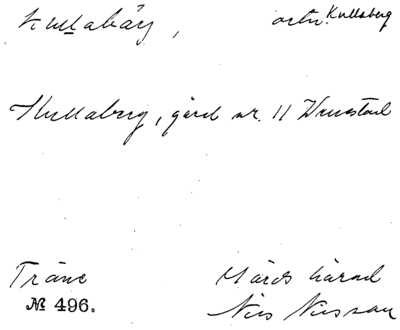 Kullabärj, ortn. Kullaberg
Kullaberg, gård nr. 11
Träne Gärds härad
№ 496. Nils Nilsson